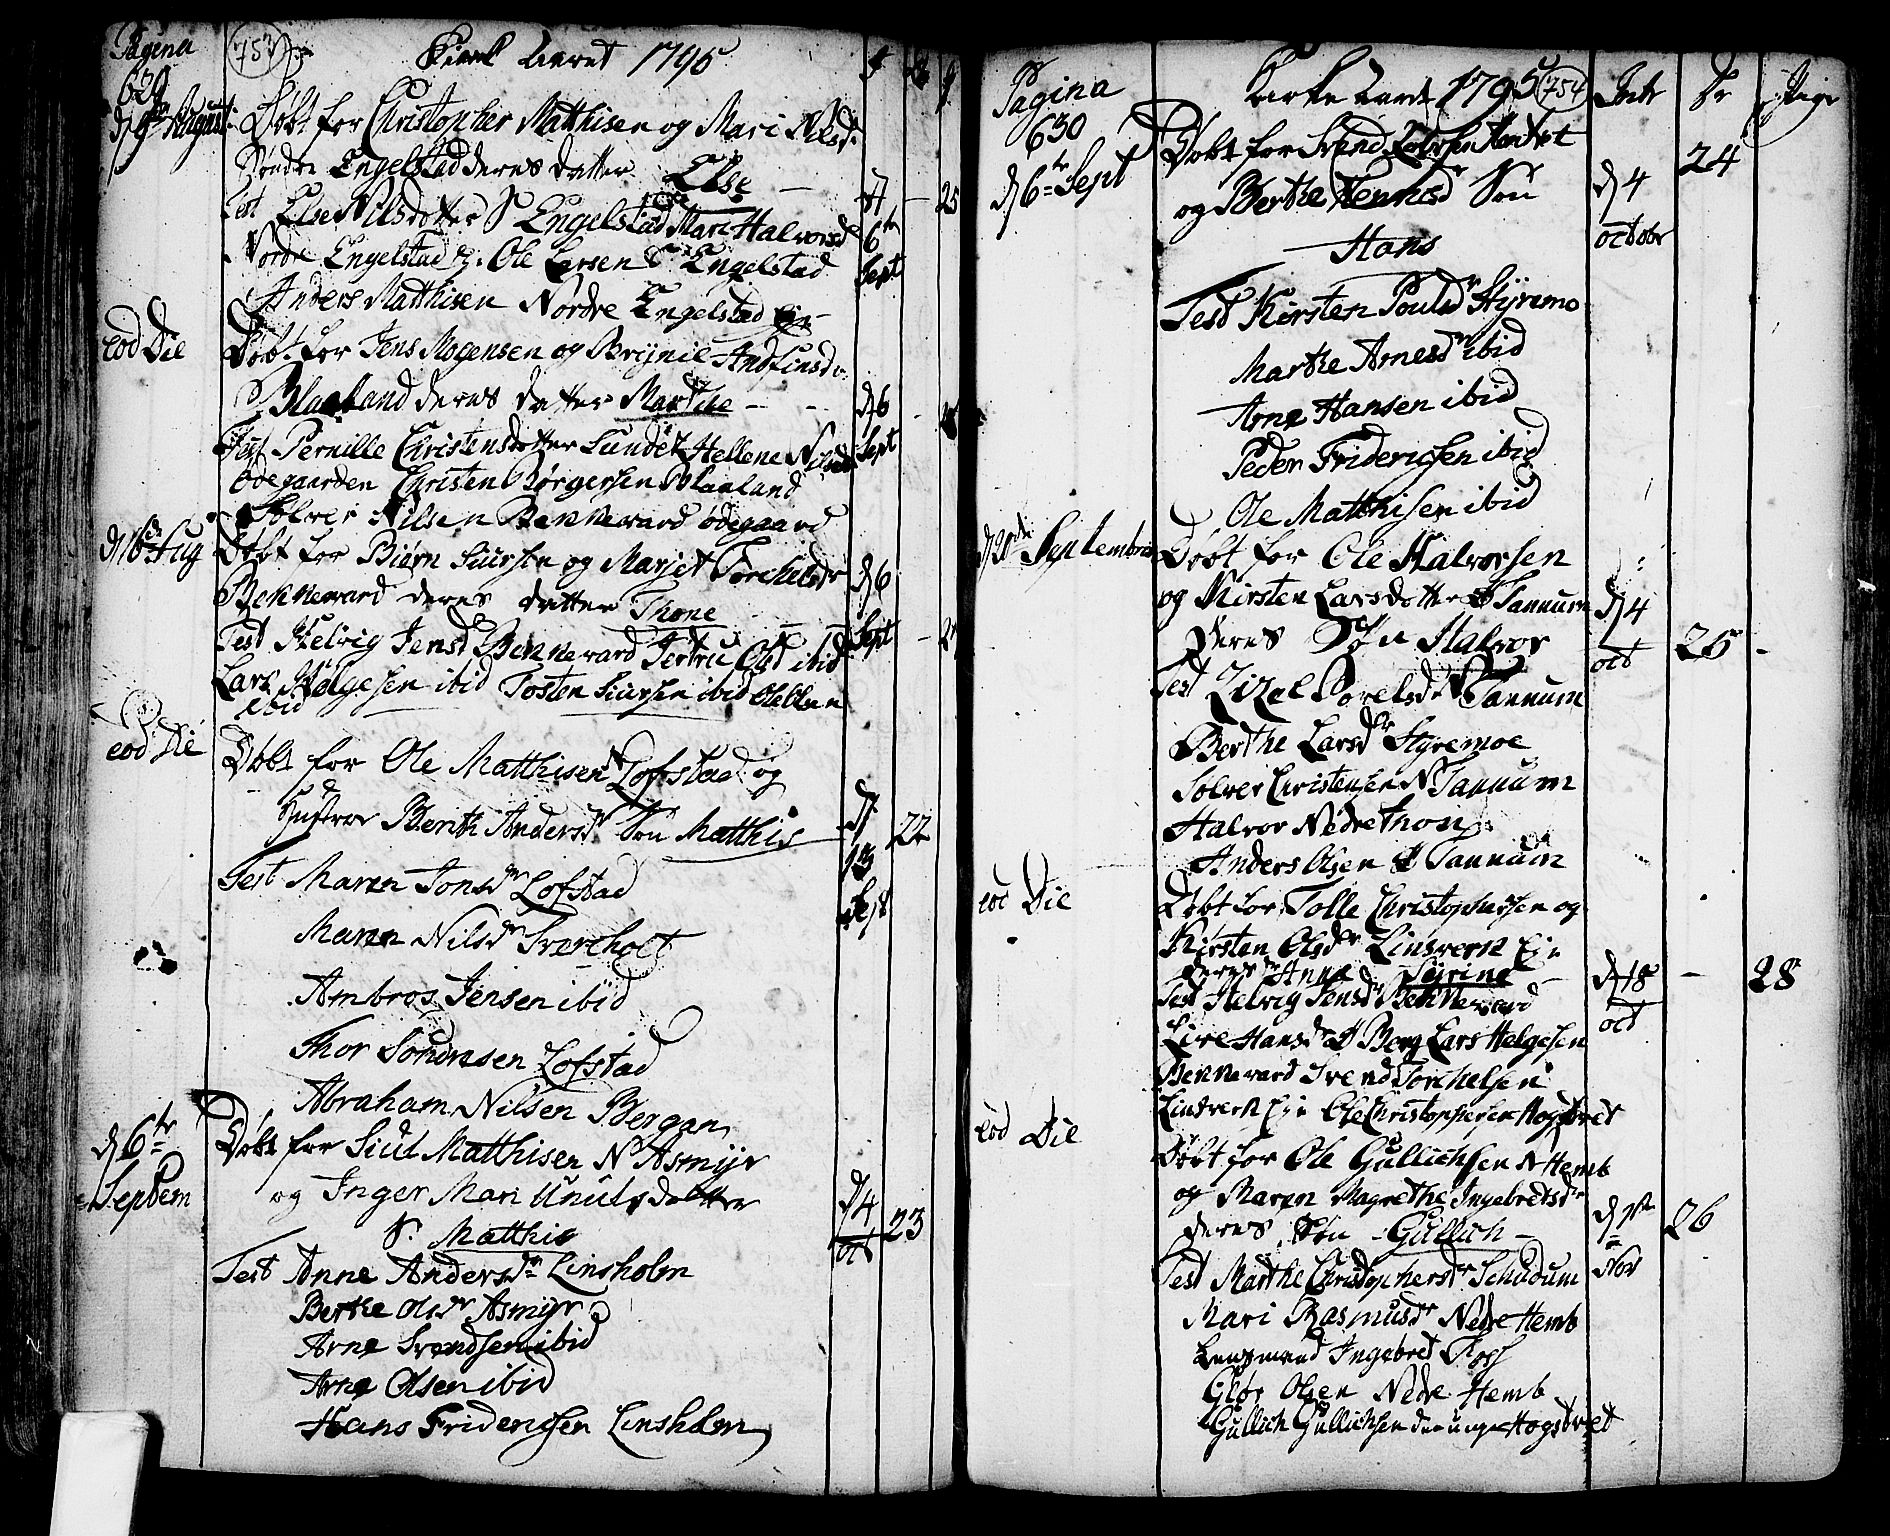 Pagina
629
753
Kirke Aaret 1795
d 9de August
Døbt for Christopher Matthisen og Mari Nilsdr
Søndre Engelstad deres datter Else
Test Else Nilsdotter S Engelstad Mari Halvorsd
Nordre Engelstad Ole Larsen S Engelstad
Anders Matthisen Nordre Engelstad
d
6te
Sept
25
eod Die
Døbt for Jens Mogensen og Brynil Andfinsd
Blaaland deres datter Marthe
Test Pernille Christensdotter Lundet Hellene Nilsd
Ødegaarden Christen Børgersen Blaaland
Solver Nilsen Benneward ødegaard
d 6
Sept
d 16 Aug
Døbt for Biørn Siursen og Marjet Torchelsdr
Benneward deres datter Thone
Test Helvig Jensd Benneward Jertru Olsd ibid
Lars Helgesen ibid Tosten Siursen ibid Ole Olsen
ibid
d 6
Sept
eod Die
Døbt for Ole Matthisen Lofstad og
Hustroe Berth Andersdr Søn Matthis
Test Maren Jonsdr Lofstad
Maren Nilsdr Svereholt
Ambros Jensen ibid
Thor Sørensen Lofstad
Abraham Nilsen Bergan
d
13
Sept
22
d 6te
Septem
Døbt for Siul Matthisen N Asmyr
og Inger Mari Knutsdotter
S. Matthis
Test Anne Andersdr Linsholm
Berthe Olsdr Asmyr
Arne Svendsen ibid
Arne Olsen ibid
Hans Friderichsen Linsholm
d 4
oct
23
Pagina
630
Kirke Aaret 1795
754
Intr
Dr
Pige
d 6te Sept
Døbt for Svend
og Berthe Søn
Hans
Test Kirsten Poulsdr Styremo
Marthe Arnesdr ibid
Arne Hansen ibid
Peder Friderichsen ibid
Ole Matthisen ibid
d 4
octobr
24
d 20de Septembris
Døbt for Ole Halvorsen
og Kirsten Larsdotter S Tannum
Deres Søn Halvor
Test Zizel Borelsdr N Tannum
Berthe Larsdr Styremoe
Solver Christensen N Tannum
Halvor Nedre Tnon
Anders Olsen S Tannum
d 4
oct
25
eod Die
Døbt for Tolle Christophersen og
Kirsten Olsdr Linsverk Eje
deres dr Anne Syrine
Test Helvig Jensdr Benneward
Live Hansdr Berg Lars Helgesen
Benneward Svend Torchelsen
Linsverk Eje Ole Christophersen Hogstvet
d 18
oct
28
eod Die
Døbt for Ole Gullichsen N Hemb
og Maren Magrethe Ingebretsdr
deres Søn Gullich
Test Marthe Christophersdr Schudum
Mari Rasmusdr Nedre Hemb
Lensmand Ingebret Foss
Gløe Olsen Nedre Hemb
Gullich Gullichsen den unge Hogstvet
d 1te
Nov
26